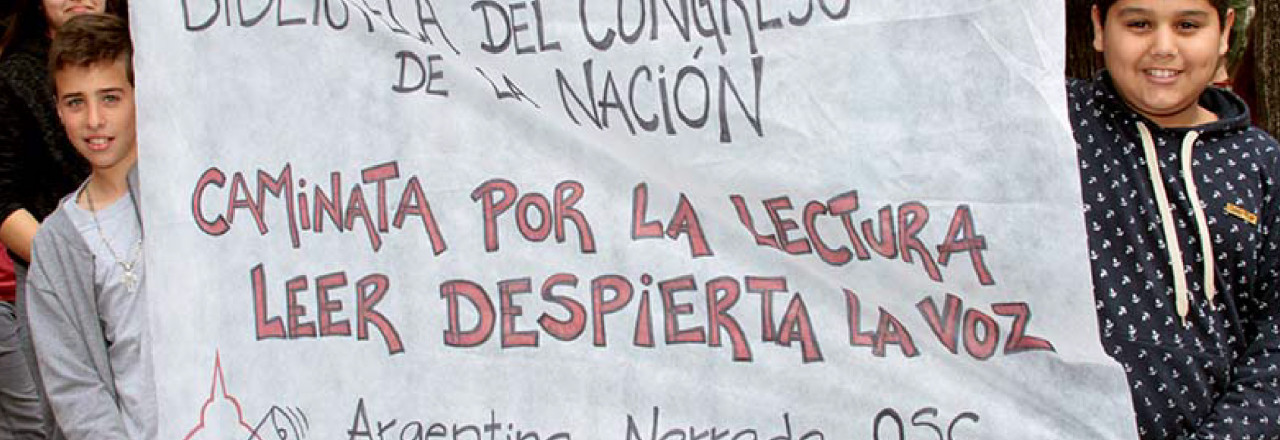 BIBLIOTECA DEL CONGRESO
DE LA NACIÓN
CAMINATA POR LA LECTURA
LEER DESPIERTA LA VOZ
Argentina Narrada OSC